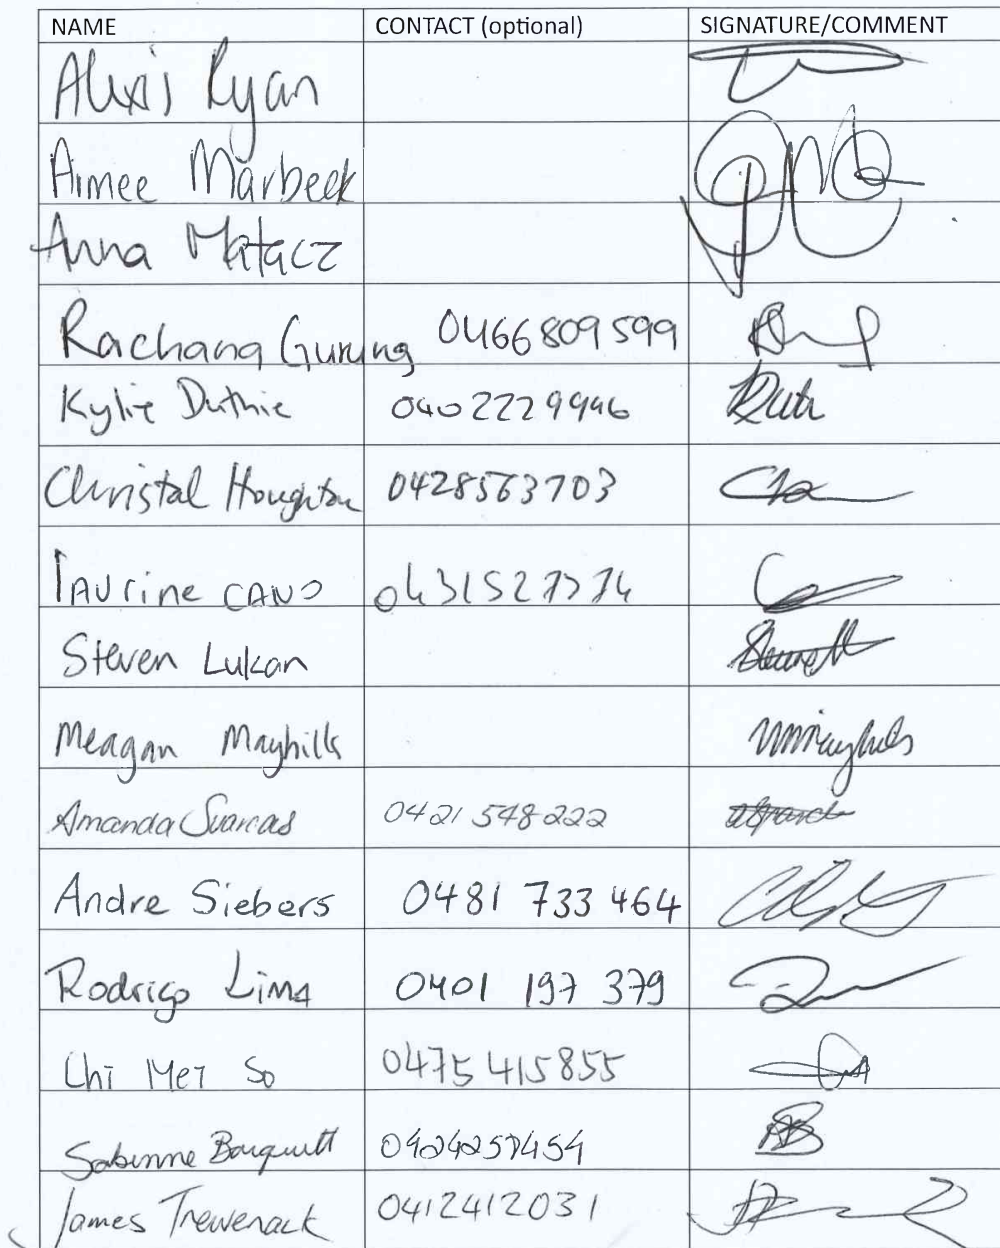 NAME CONTACT (optional) SIGNATURE/COMMENT
Alexis Ryan
Aimee Marbeek
Anna Matacz
Rachana Gurung 0466809599
Kylie Duthie 0402229946
Christal Houghton 0428563703
Laurine CANO
Steven Lukan
Meagan Mayhills
Amanda 0421 548 222
Andre Siebers 0481 733 464
Rodrigo Lima 0401 197 379
Chi Mei So 0475 415855
James Trewenack 0412412031